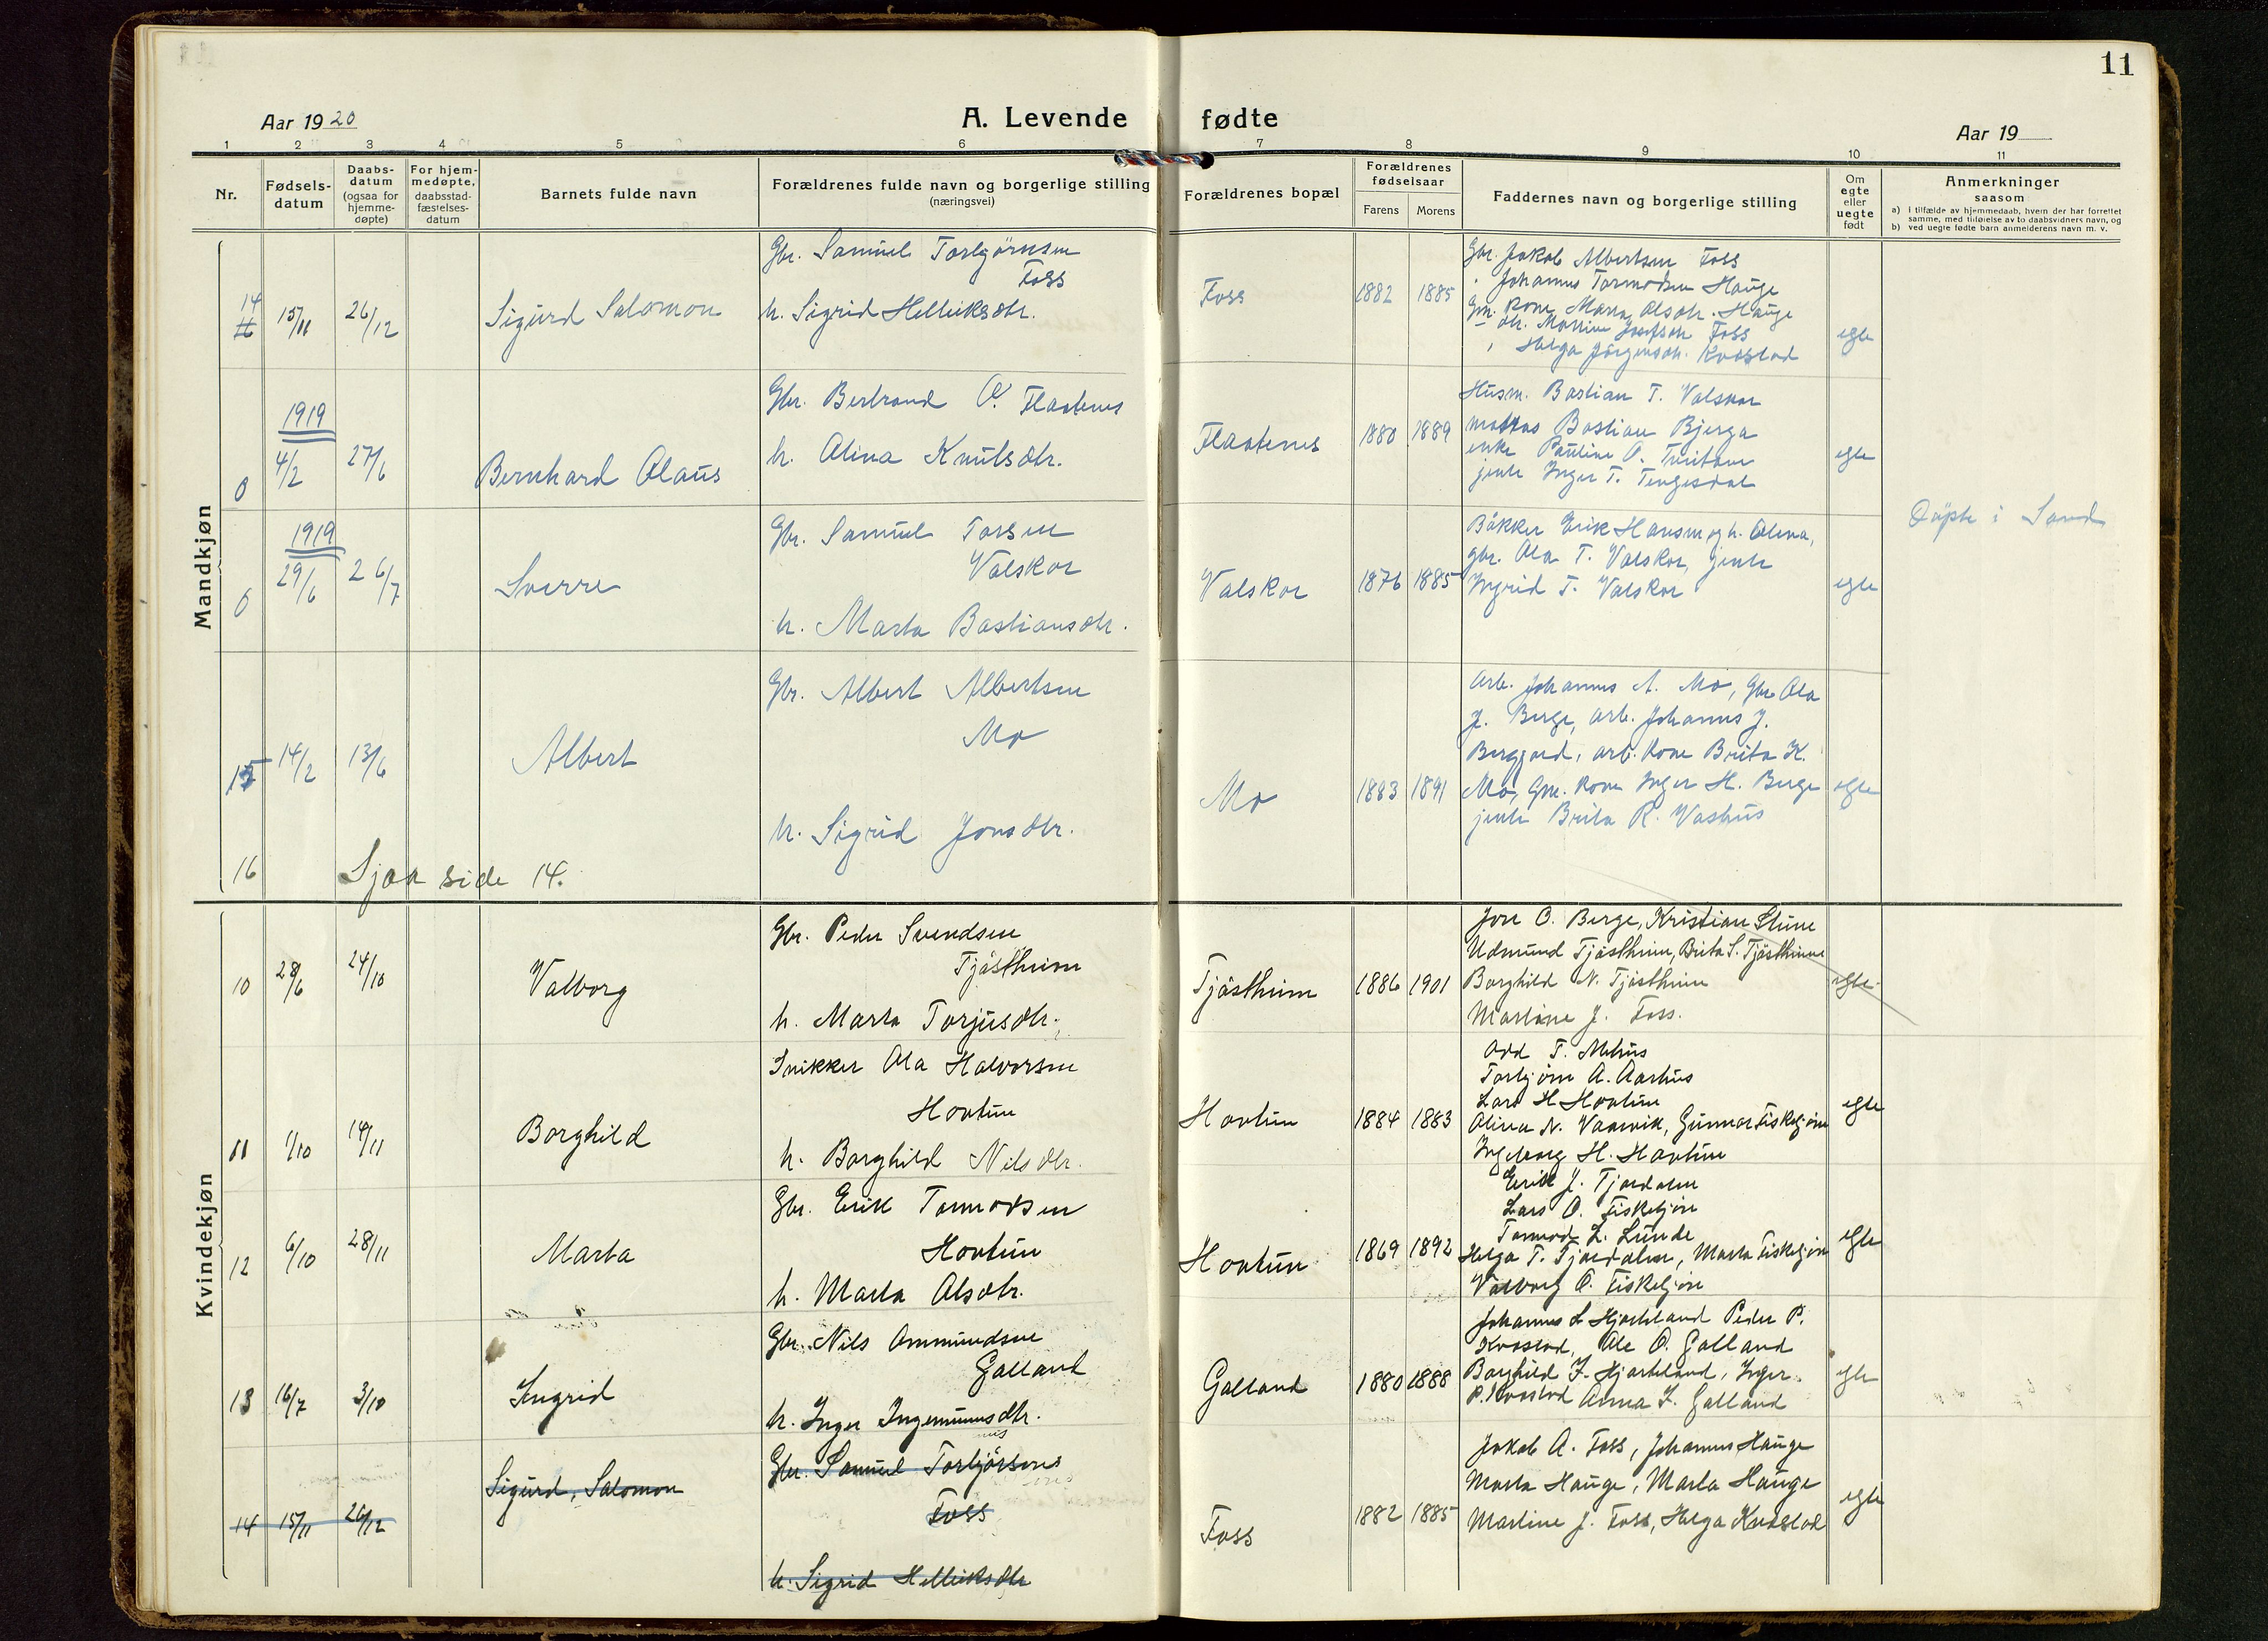 11
Aar 1920
A. Levende fødte
Aar 19
1 2 3 4 5 6 7 8 9 10 11
Nr.
Fødsels-
datum
Daabs-
datum
(ogsaa for
hjemme-
døpte)
For hjem-
medøpte,
daabsstad-
fæstelses-
datum
Barnets fulde navn
Forældrenes fulde navn og borgerlige stilling
(næringsvei)
Forældrenes bopæl
Forældrenes
fødselsaar
Farens Morens
Faddernes navn og borgerlige stilling
Om
egte
eller
uegte
født
Anmerkninger
saasom
a) i tilfælde av hjemmedaab, hvem der har forrettet
samme, med tilføielse av to daabsvidners navn, og
b) ved uegte fødte barn anmelderens navn m. v.
Mandkjøn
14 15/11 26/12 Sigurd Salomon
Gbr. Samuel Torbjörnsen
Foss
h. Sigrid Helliksdtr.
Foss 1882 1885
Gbr. Jakob Albertsen Foss
Johannes Tormodsen Hauge
Gm. kone Marta Olsdtr. Hauge
Martine Foss
Helga Jørgensdtr. Kvæstad
egte
0 1919 4/2 27/6 Bernhard Olaus
Gbr. Bertrand O. Flaatenes
h. Alina Knutsdtr.
Flaatenes 1880 1889
Husm. Bastian T. Valskar
Bastian Bjerga
enke Pauline O.
jente Inger T. Tengesdal
egte
0 1919 29/6 26/7 Sverre
Gbr. Samuel Torsen
Valskor
h. Marta Bastiansdtr.
Valskor 1876 1885
Bäkker Erik Hansen og h. Alina,
gbr. Ola T. Valskor, jente
Ingrid T. Valskor
egte
Döpte i Sand
15 14/2 13/6 Albert
Gbr. Albert Albertsen
Mo
h. Sigrid Jonsdtr.
Mo 1883 1891
Arb. Johannes A. Mo, Gbr. Ola
J. Berge, arb. Johannes J.
arb. kone Brita K.
Mo, Gm. kone Inger H. Berge
jente Brita R. Vashus
egte
16 Sjaa side 14.
Kvindekjøn
10 28/6 24/10 Valborg
Gbr. Peder Svendsen
Tjöstheim
h. Marta Torjusdtr.
Tjöstheim 1886 1901
Jon O. Berge, Kristian Stune
Udmund Tjöstheim, Brita S. Tjöstheim
Borghild N. Tjöstheim
Martine J. Foss.
egte
11 1/10 14/11 Borghild
Snikker Ola Halvorsen
Hovtun
h. Borghild Nilsdtr.
Hovtun 1884 1883
Odd T. Mehus
Torbjörn A. Aarhus
Lars H. Hovtun
Alina N. Vanvik, Gunnar Fisketjön
Ingeborg H. Hovtun
egte
12 6/10 28/11 Marta
Gbr. Erik Tormodsen
Hovtun
h. Marta Olsdtr.
Hovtun 1869 1892
Erik J. Fjordalen
Lars O. Fisketjön
Tormod L. Lunde
Helga T. Fjordalen, Marta Fisketjön
Valborg O. Fisketjön
egte
13 16/7 3/10 Ingrid
Gbr. Nils Ommundsen
Galland
h. Inger Ingemunnsdtr.
Galland 1880 1888
Johannes L Hjorteland Peder P.
Kvæstad, Ole O. Galland
Borghild J. Hjorteland, Inger
P. Kvæstad Anna J. Galland
egte
14 15/11 26/12 Sigurd, Salomon
Gbr. Samuel Torbjörsens
Foss
h. Sigrid Helliksdtr
Foss 1882 1885
Jakob A. Foss, Johannes Hauge
Marta Hauge, Marta Hauge
Martine J. Foss, Helga Kvæstad
egte